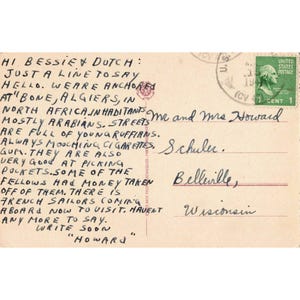 HI BESSIE & DUTCH:
JUST A LINE TO SAY
HELLO. WE ARE ANCHORED
AT "BONE, ALGIERS, IN
NORTH AFRICA. INHABITANTS
MOSTLY ARABIANS. STREETS
ARE FULL OF YOUNG RUFFIANS.
ALWAYS MOOCHING CIGARETTES,
GUM. THEY ARE ALSO
VERY GOOD AT PICKING
POCKETS. SOME OF THE
FELLOWS HAD MONEY TAKEN
OFF OF THEM. THERE IS
FRENCH SAILORS COMING
ABOARD NOW TO VISIT. HAVENT
ANY MORE TO SAY.
WRITE SOON
"HOWARD"
U.S.
UNITED STATES POSTAGE
1 CENT 1
Mr and Mrs Howard
Schuler.
Belleville,
Wisconsin